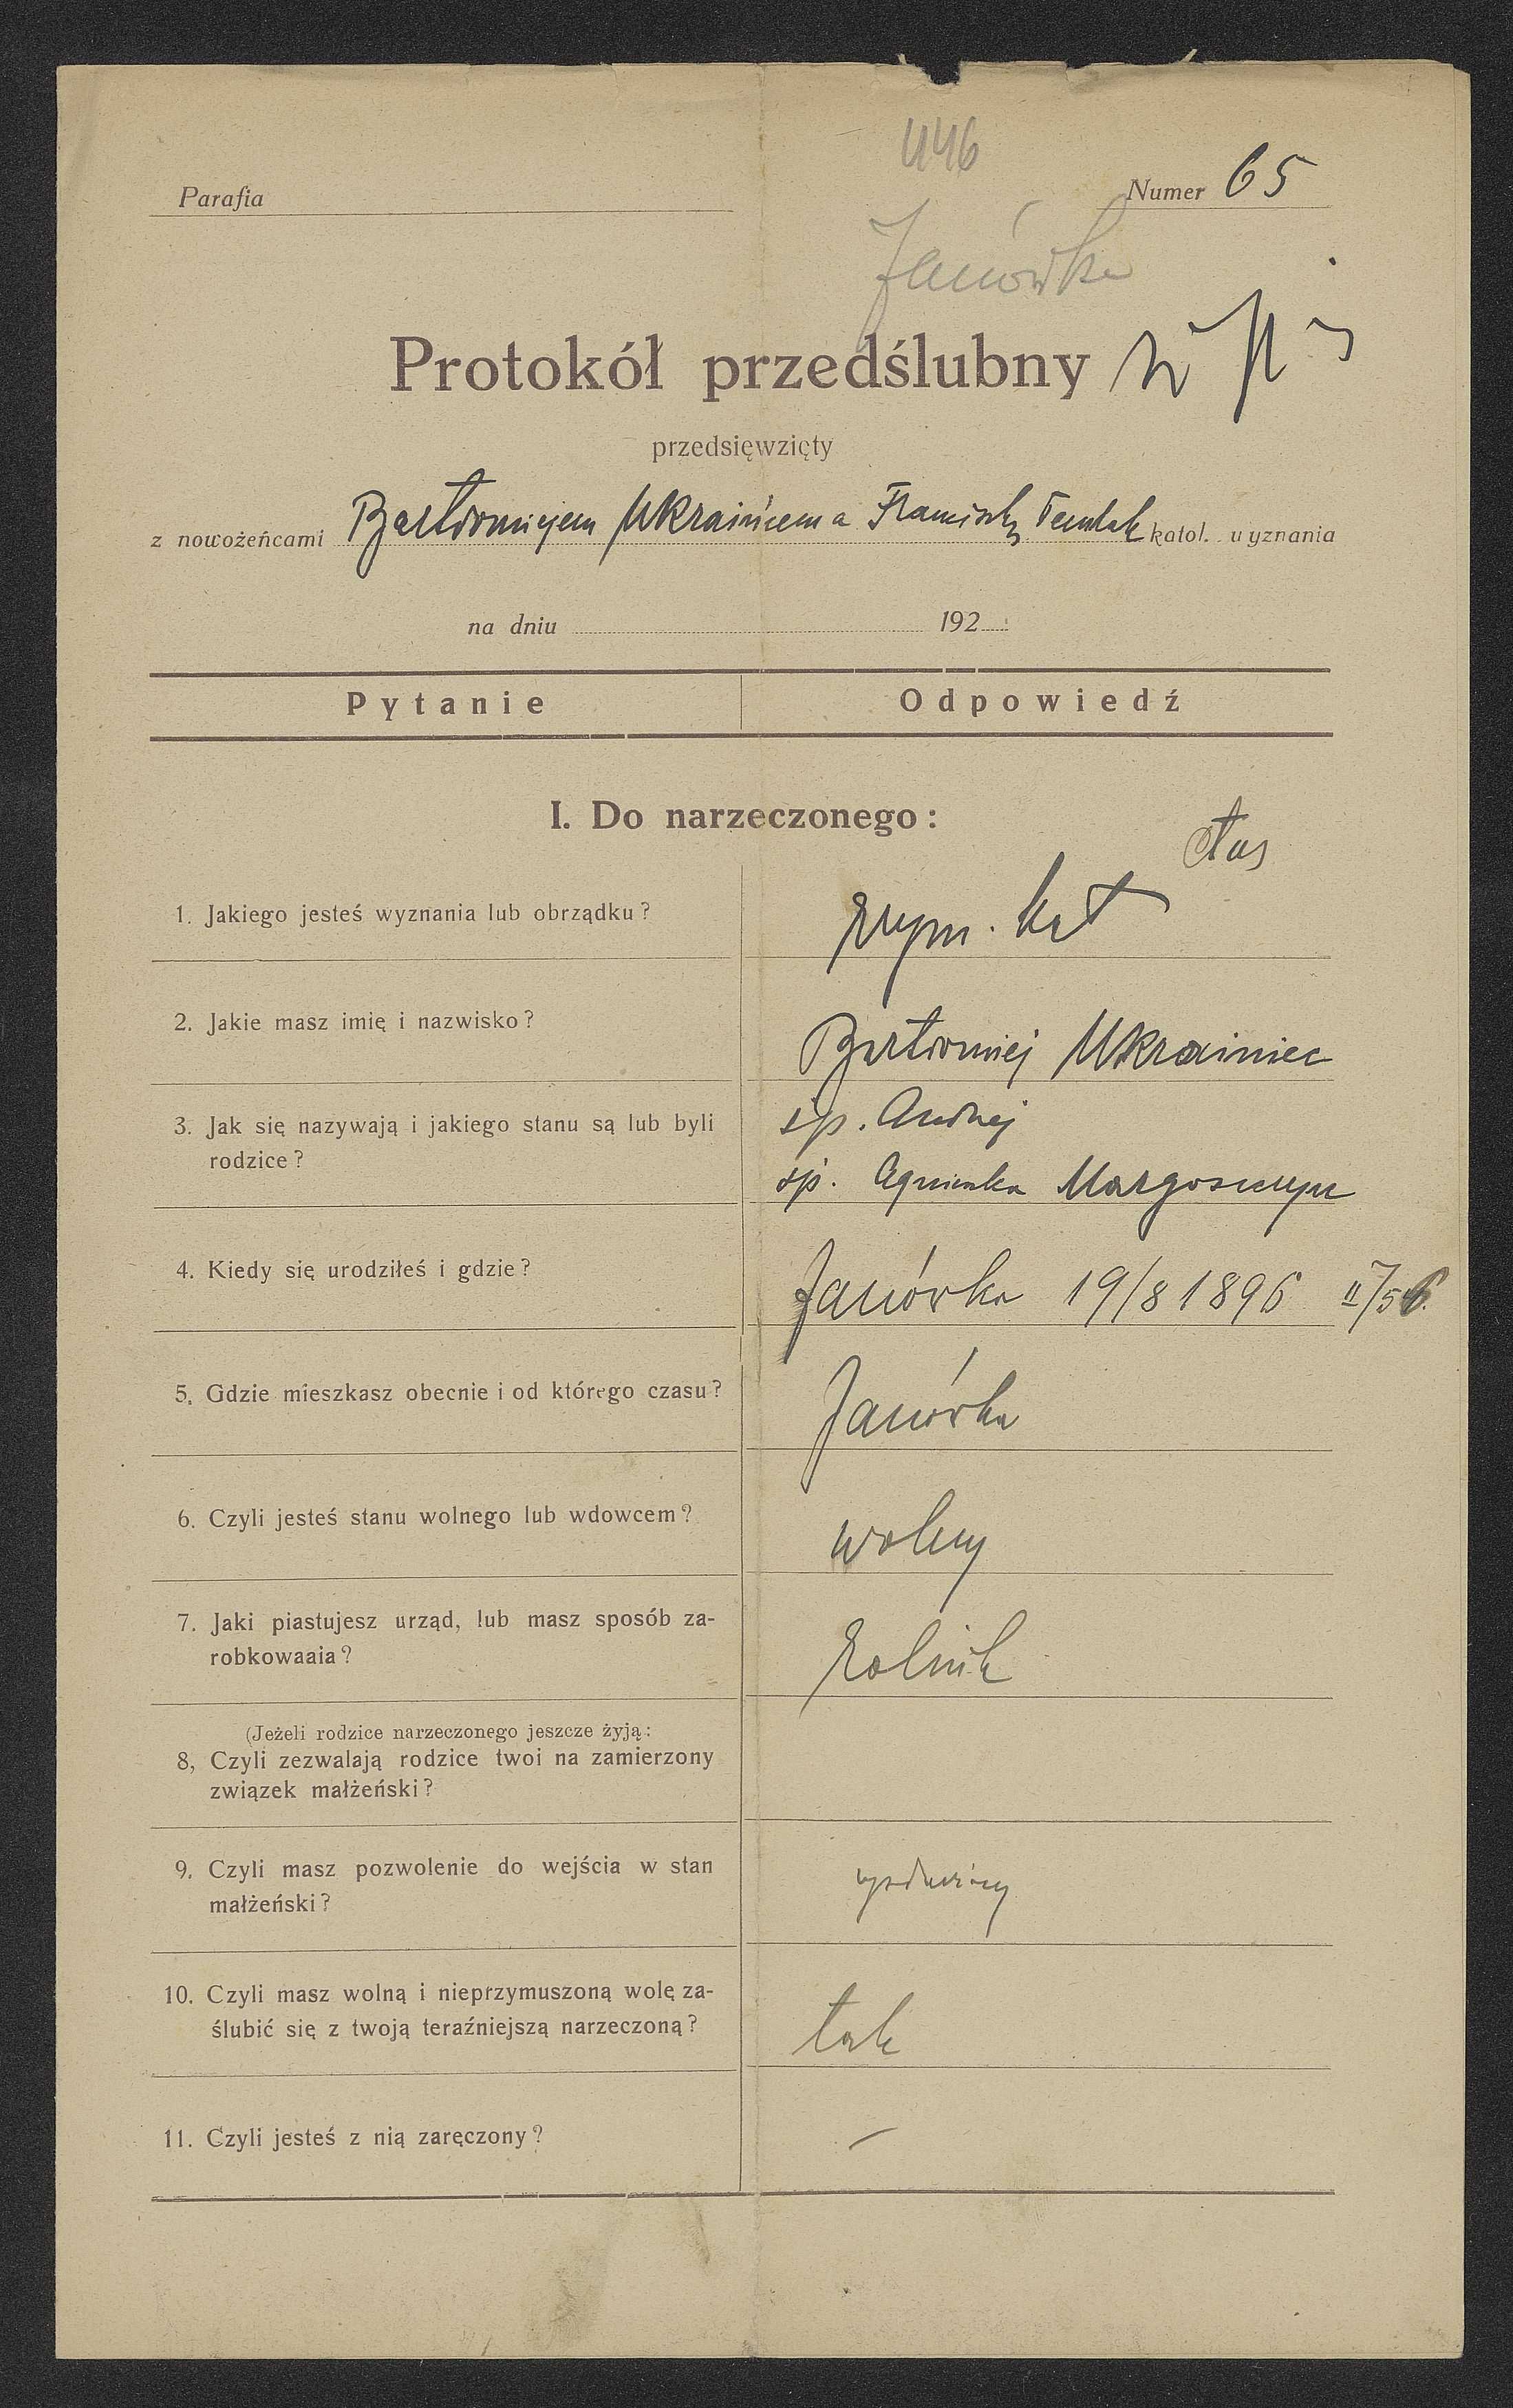 446
Parafia
Numer 65
Janówka
Protokół przedślubny
przedsięwzięty
z nowożeńcami Bartłomiejem Ukraińcem a Franciszką katol. wyznania
na dniu 192
Pytanie Odpowiedź
I. Do narzeczonego:
1. Jakiego jesteś wyznania lub obrządku?
rzym. kat
2. Jakie masz imię i nazwisko?
Bartłomiej Ukrainiec
3. Jak się nazywają i jakiego stanu są lub byli
rodzice?
śp. Andrzej
śp. Agnieszka
4. Kiedy się urodziłeś i gdzie?
Janówka 19/8 1896
5. Gdzie mieszkasz obecnie i od którego czasu?
Janówka
6. Czyli jesteś stanu wolnego lub wdowcem?
wolny
7. Jaki piastujesz urząd, lub masz sposób za-
robkowaaia?
rolnik
(Jeżeli rodzice narzeczonego jeszcze żyją:
8, Czyli zezwalają rodzice twoi na zamierzony
związek małżeński?
9. Czyli masz pozwolenie do wejścia w stan
małżeński?
10. Czyli masz wolną i nieprzymuszoną wolę za-
ślubić się z twoją teraźniejszą narzeczoną?
tak
11. Czyli jesteś z nią zaręczony?
—